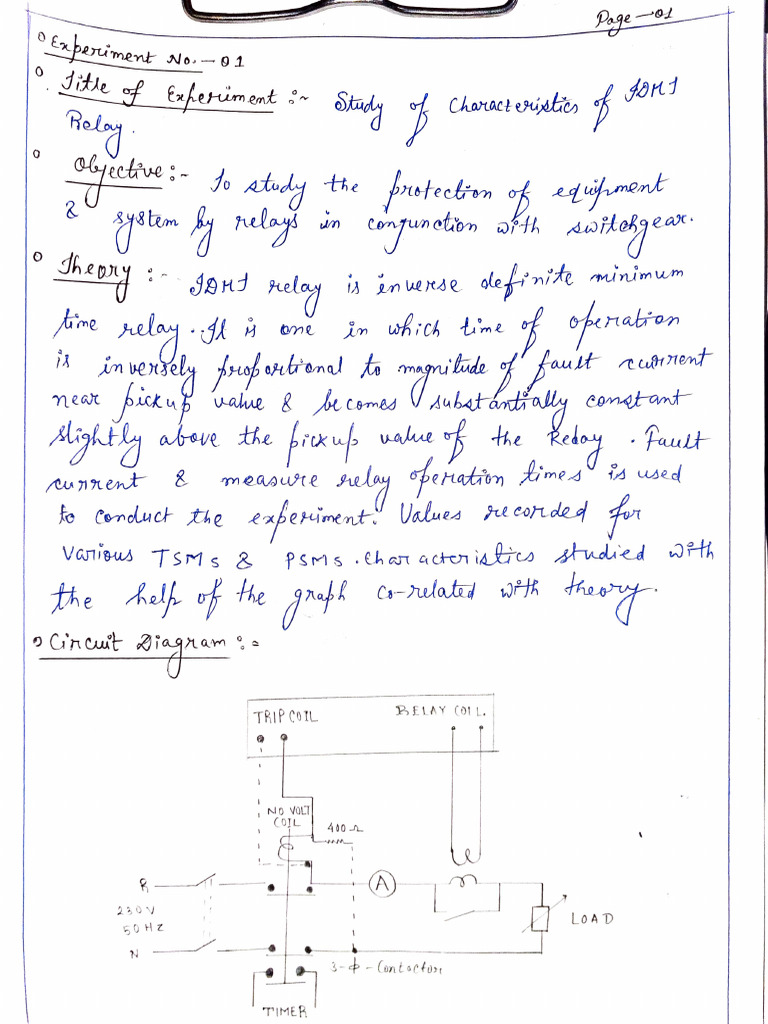 Page-01
Experiment No.-01
Title of Experiment :~ Study of Characteristics of IDMT
Relay.
Objective :~ To study the protection of equipment
& system by relays in conjunction with switchgear.
Theory :~ IDMT relay is inverse definite minimum
time relay. It is one in which time of operation
is inversely proportional to magnitude of fault current
near pickup value & becomes substantially constant
slightly above the pickup value of the Relay. Fault
current & measure relay operation times is used
to conduct the experiment. Values recorded for
various TSMs & PSMs. Characteristics studied with
the help of the graph co-related with theory.
Circuit Diagram :-
TRIP COIL
RELAY COIL.
NO VOLT
COIL
400 Ω
R
A
230V
50HZ
LOAD
N
3-Φ-Contactor
TIMER